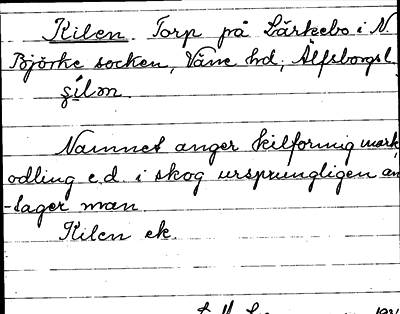 Kilen. Torp på Lärkebo i N.
Björke socken, Väne hd, Älfsborgsl.
çílən.
Namnet anger kilformig mark,
odling e.d. i skog ursprungligen an
-tager man
Kilen ek.